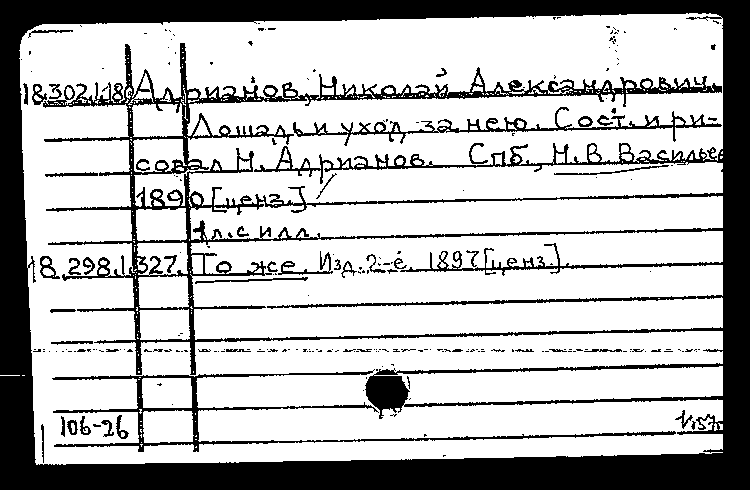 18.302.1.180 Адрианов, Николай Александрович.
Лошадь и уход за нею. Сост. и ри-
совал Н. Адрианов. Спб., Н. В. Васильев
1890 [ценз.].
1 л. с илл.
18.298.1.327. То же. Изд. 2-е. 1897 [ценз.].
106-26